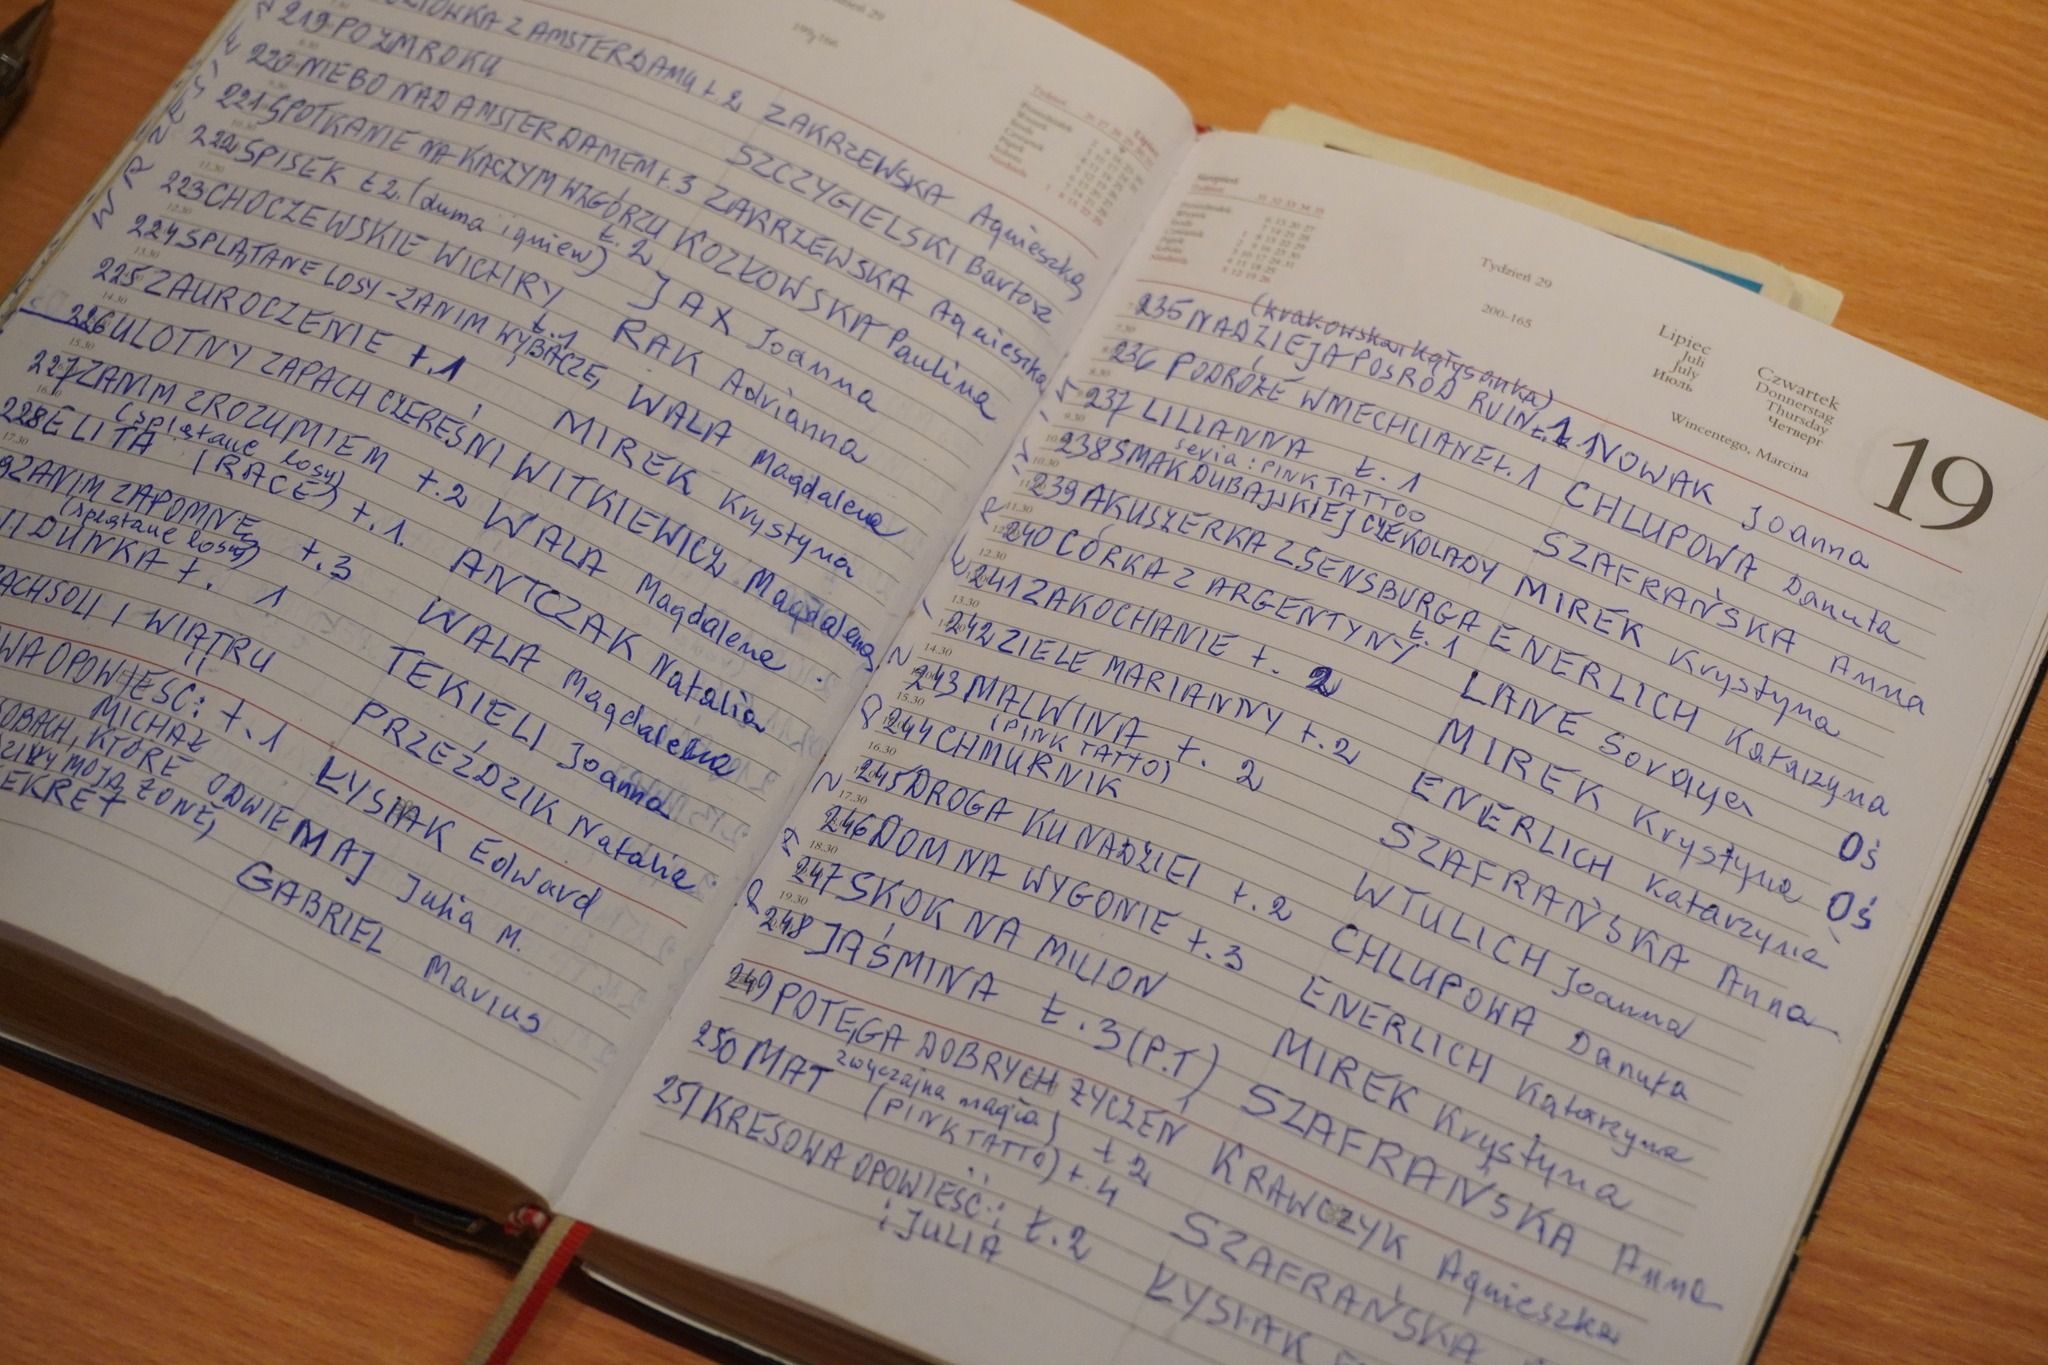 Tydzień 29
199-166
ZTÓWKA Z AMSTERDAMU t. 2 ZAKRZEWSKA Agnieszka
219 PO ZMROKU SZCZYGIELSKI Bartosz
220 NIEBO NAD AMSTERDAMEM t. 3 ZAKRZEWSKA Agnieszka
221 SPOTKANIE NA KACZYM WZGÓRZU KOZŁOWSKA Paulina
222 SPISEK t. 2. (duma i gniew) JAX Joanna
223 CHOCZEWSKIE WICHRY t. 2 RAK Adrianna
224 SPLĄTANE LOSY - ZANIM WYBACZĘ t. 1 WALA Magdalena
225 ZAUROCZENIE t. 1 MIREK Krystyna
226 ULOTNY ZAPACH CZEREŚNI WITKIEWICZ Magdalena
227 ZANIM ZROZUMIEM t. 2 WALA Magdalena
(splątane losy)
228 ELITA (RACE) t. 1. ANTCZAK Natalia
9 ZANIM ZAPOMNĘ t. 3 WALA Magdalena
(splątane losy)
DUNKA t. 1 TEKIELI Joanna
ACH SOLI I WIATRU PRZEŹDZIK Natalia
WA OPOWIEŚĆ: t. 1 ŁYSIAK Edward
MICHAŁ
OBACH, KTÓRE ODWIE MAJ Julia M.
MOJĄ ŻONĘ,
EKRET GABRIEL Marius
Tydzień 29
200-165
Lipiec
Juli
July
Июль
Czwartek
Donnerstag
Thursday
Четверг
Wincentego, Marcina
19
(krakowska kołysanka)
235 NADZIEJA POŚRÓD RUIN t. 1 NOWAK Joanna
236 PODRÓŻE W MECHLIANE t. 1 CHLUPOWA Danuta
237 LILIANNA t. 1 SZAFRAŃSKA Anna
seria: PINK TATTOO
238 SMAK DUBAJSKIEJ CZEKOLADY MIREK Krystyna
239 AKUSZERKA Z SENSBURGA t. 1 ENERLICH Katarzyna
240 CÓRKA Z ARGENTYNY LANE Soraya Oś
241 ZAKOCHANIE t. 2 MIREK Krystyna Oś
242 ZIELE MARIANNY t. 2 ENERLICH Katarzyna
243 MALWINA t. 2 SZAFRAŃSKA Anna
(PINK TATTO)
244 CHMURNIK WTULICH Joanna
245 DROGA KU NADZIEI t. 2 CHLUPOWA Danuta
246 DOM NA WYGONIE t. 3 ENERLICH Katarzyna
247 SKOK NA MILION MIREK Krystyna
248 JAŚMINA t. 3 (P.T) SZAFRAŃSKA Anna
249 POTĘGA DOBRYCH ŻYCZEŃ KRAWCZYK Agnieszka
zwyczajna magia) t 2
250 MAT (PINK TATTO) t. 4 SZAFRAŃSKA
251 KRESOWA OPOWIEŚĆ: t. 2 ŁYSIAK
i JULIA